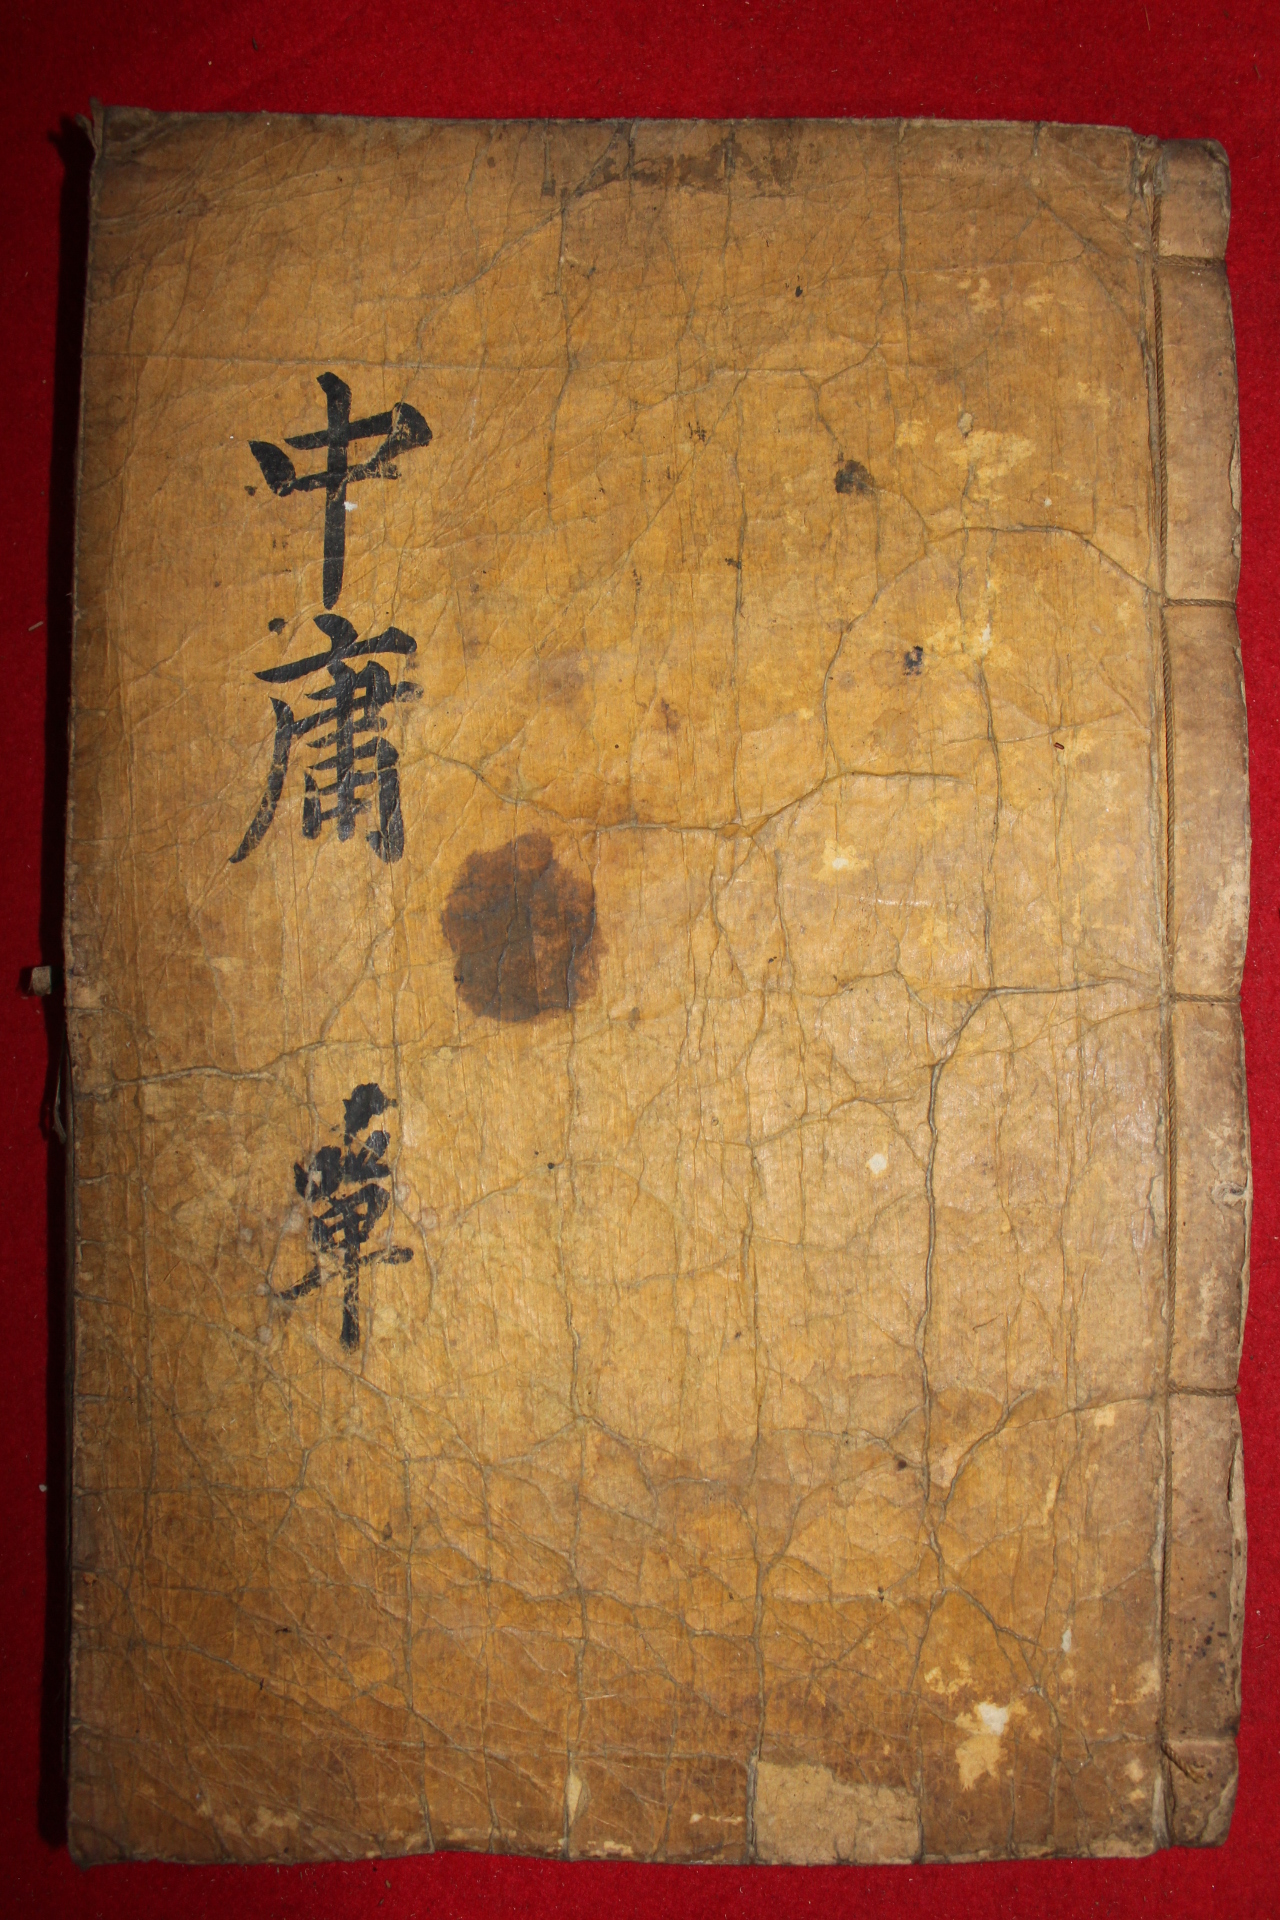 中庸 單